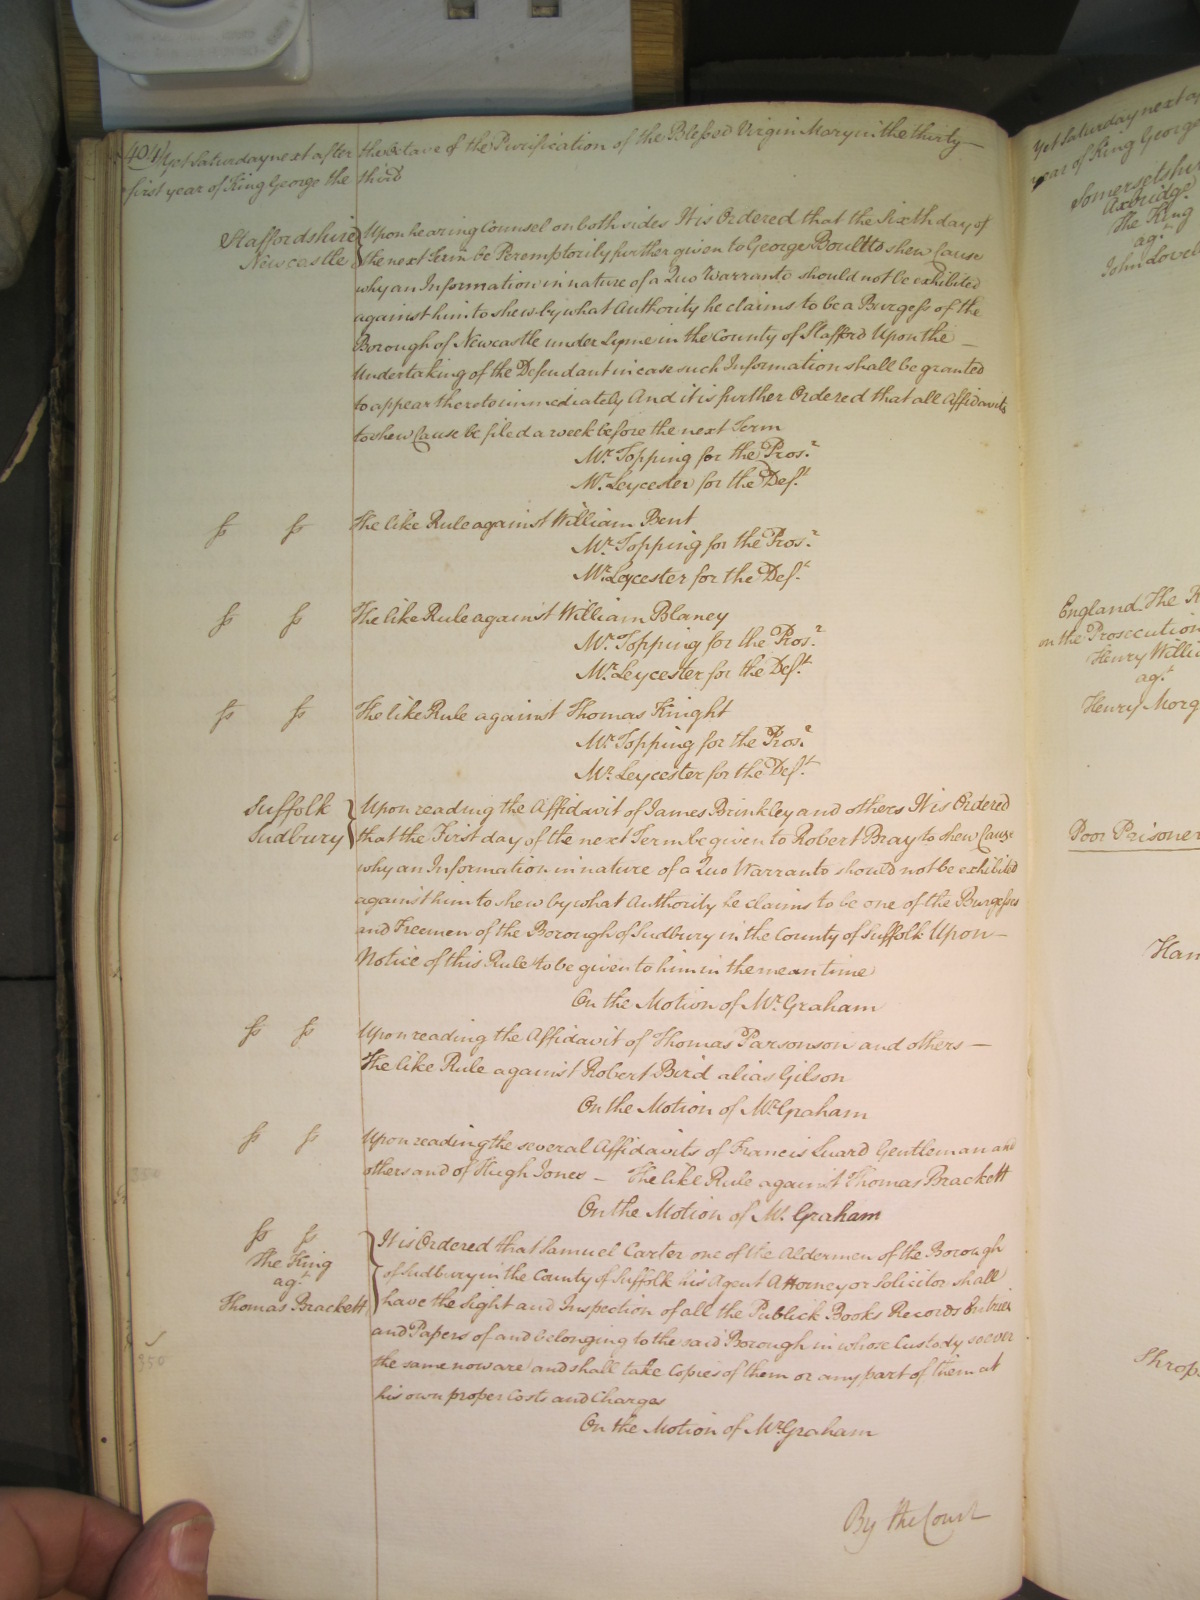 404 Yet Saturday next after the Octave of the Purification of the Blessed Virgin Mary in the thirty
first year of King George the third
Staffordshire Upon hearing Counsel on both sides It is Ordered that the Sixth day of
Newcastle the next Term be Peremptorily further given to George Boult to shew Cause
why an Information in nature of a Quo Warranto should not be exhibited
against him to shew by what Authority he claims to be a Burgess of the
Borough of Newcastle under Lyme in the County of Stafford Upon the
Undertaking of the Defendant in case such Information shall be granted
to appear thereto immediately And it is further Ordered that all Affidavits
to shew Cause be filed a week before the next Term
Mr. Topping for the Prosr.
Mr. Leycester for the Deft.
ss ss The like Rule against William Bent
Mr. Topping for the Prosr.
Mr. Leycester for the Deft.
ss ss The like Rule against William Blaney
Mr. Topping for the Prosr.
Mr. Leycester for the Deft.
ss ss The like Rule against Thomas Knight
Mr. Topping for the Prosr.
Mr. Leycester for the Deft.
Suffolk Upon reading the Affidavit of James Brinkley and others It is Ordered
Sudbury that the First day of the next Term be given to Robert Bray to shew Cause
why an Information in nature of a Quo Warranto should not be exhibited
against him to shew by what Authority he claims to be one of the Burgesses
and Freemen of the Borough of Sudbury in the County of Suffolk Upon
Notice of this Rule to be given to him in the mean time
On the Motion of Mr. Graham
ss ss Upon reading the Affidavit of Thomas Parsonson and others
The like Rule against Robert Bird alias Gilson
On the Motion of Mr. Graham
ss ss Upon reading the several Affidavits of Francis Luard Gentleman and
others and of Hugh Jones The like Rule against Thomas Brackett
On the Motion of Mr. Graham
ss ss It is Ordered that Samuel Carter one of the Aldermen of the Borough
The King of Sudbury in the County of Suffolk his Agent Attorney or Solicitor shall
agt.
Thomas Brackett have the Sight and Inspection of all the Publick Books Records Entries
and Papers of and belonging to the said Borough in whose Custody soever
the same now are and shall take Copies of them or any part of them at
his own proper Costs and Charges
On the Motion of Mr. Graham
By the Court
Yet Saturday next
year of King George
Somersetshire
Axbridge
The King
agt.
John Love
England The
on the Prosecution
Henry Willi
agt.
Henry Morg
Poor Prisoner
Ham
Shrops